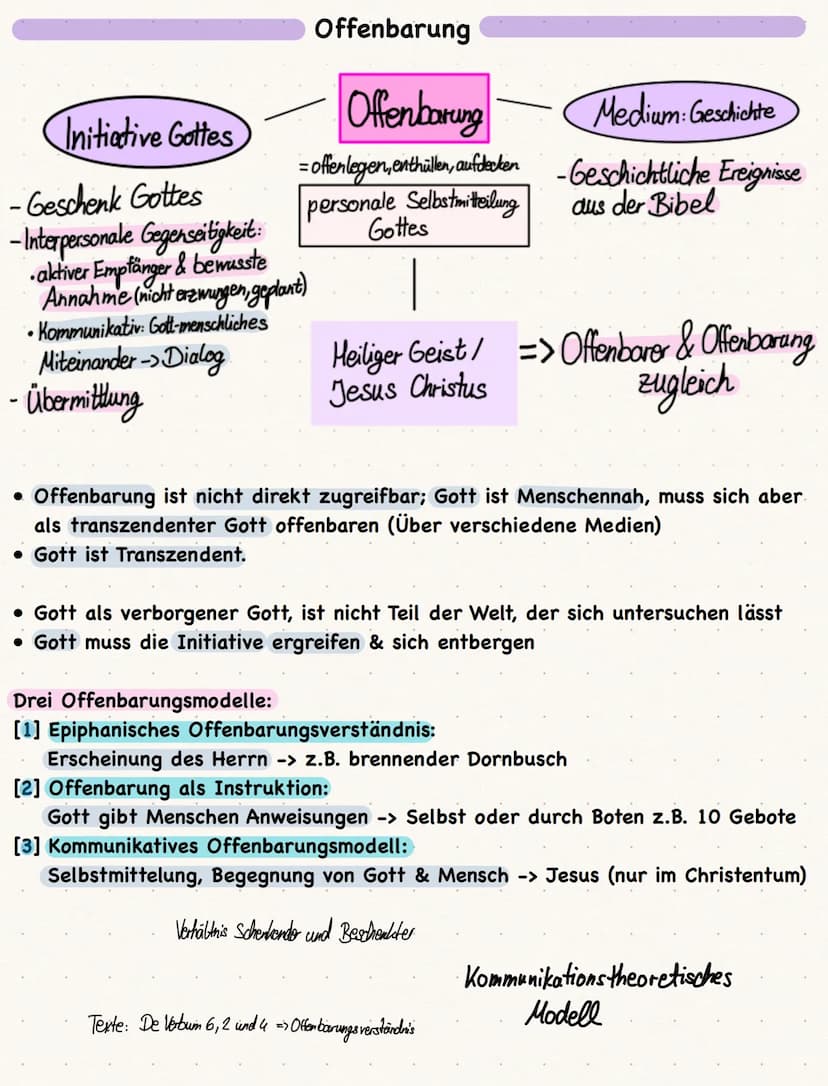 Offenbarung
Offenbarung
Initiative Gottes
Medium: Geschichte
= offenlegen, enthüllen, aufdecken
personale Selbstmitteilung
Gottes
- Geschenk Gottes
- Interpersonale Gegenseitigkeit:
• aktiver Empfänger & bewusste
Annahme (nicht erzwungen, geplant)
• Kommunikativ: Gott-menschliches
Miteinander -> Dialog
- Übermittlung
- Geschichtliche Ereignisse
aus der Bibel
Heiliger Geist /
Jesus Christus
=> Offenbarer & Offenbarung
zugleich
• Offenbarung ist nicht direkt zugreifbar; Gott ist Menschennah, muss sich aber
als transzendenter Gott offenbaren (Über verschiedene Medien)
• Gott ist Transzendent.
• Gott als verborgener Gott, ist nicht Teil der Welt, der sich untersuchen lässt
• Gott muss die Initiative ergreifen & sich entbergen
Drei Offenbarungsmodelle:
[1] Epiphanisches Offenbarungsverständnis:
Erscheinung des Herrn -> z.B. brennender Dornbusch
[2] Offenbarung als Instruktion:
Gott gibt Menschen Anweisungen -> Selbst oder durch Boten z.B. 10 Gebote
[3] Kommunikatives Offenbarungsmodell:
Selbstmittelung, Begegnung von Gott & Mensch -> Jesus (nur im Christentum)
Verhältnis Schenkender und Beschenkter
Kommunikationstheoretisches
Modell
Texte: De Verbum 6, 2 und 4 => Offenbarungsverständnis